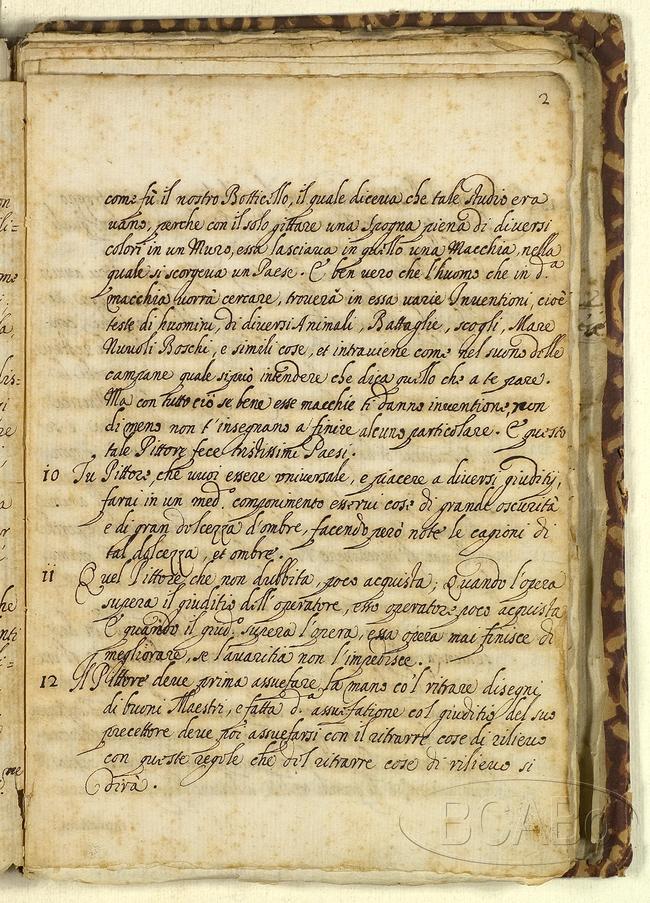 2
come fù il nostro Botticello, il quale diceva che tale studio era
vano, perche con il solo gittare una spogna piena di diversi
colori in un Muro, essa lasciava in quello una Macchia, nella
quale si scorgeva un Paese. È ben vero che l'huomo che in d.ª
macchia vorrà cercare, troverà in essa varie Inventioni, cioè
teste di huomini, di diversi Animali, Battaglie, scogli, Mare
Nuvoli Boschi, e simili cose, et intraviene come nel suono delle
campane quale si può intendere che dica quello che a te pare.
Ma con tutto ciò se bene esse macchie ti danno inventione, non
di meno non t'insegnano a finire alcuno particolare. E questo
tale Pittore fece tristissimi Paesi.
10 Tu Pittore, che vuoi essere universale, e piacere a diversi giuditij,
farai in un med.º componimento esservi cose di grande oscurità
e di gran dolcezza d'ombre, facendo però note le cagioni di
tal dolcezza, et ombre.
11 Quel Pittore che non dubbita, poco acquista; Quando l'opera
supera il giuditio dell'operatore, esso operatore poco acquista
E quando il giud.º supera l'opera, essa opera mai finisce di
megliorare, se l'avaritia non l'impedisce.
12 Il Pittore deve prima assuefare la mano co'l ritrare disegni
di buoni Maestri, e fatta d.ª assuefatione co'l giuditio del suo
precettore deve poi assuefarsi con il ritrarre cose di rilievo
con queste regole che di'l ritrarre cose di rilievo si
dirà.
BCABo